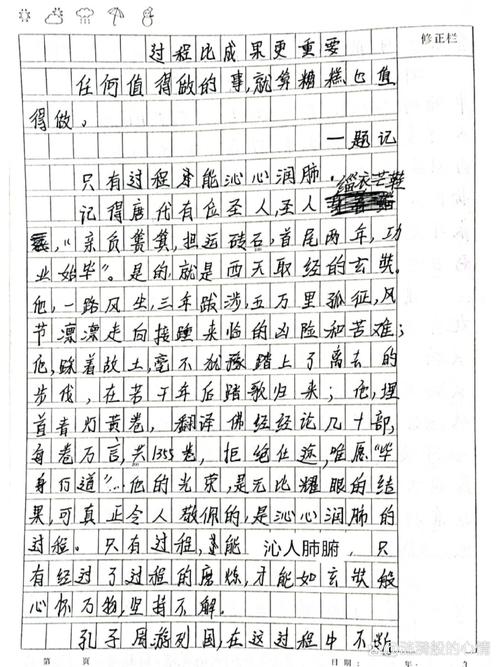 修正栏
过程比成果更重要
任何值得做的事,就算糟糕也值
得做。
一题记
只有过程才能沁心润肺.
缁衣芒鞋
记得唐代有位圣人,圣人
,“亲负篑箕,担运砖石,首尾两年,功
业始毕”。是的,就是西天取经的玄奘.
他,一路风尘,三年跋涉,五万里孤征,风
节凛凛走向接踵来临的凶险和苦难;
他,踩着故土,毫不犹豫踏上了离去的
步伐,在若干年后踏歌归来;他,埋
首青灯黄卷,翻译佛经经论几十部,
身卷万言,共1355卷,拒绝仕途,唯愿“毕
身行道”…他的光荣,是无比耀眼的结
果,可真正令人敬佩的,是沁心润肺的
过程。只有过程,才能 沁人肺腑,只
有经过了过程的磨炼,才能如玄奘般
心怀万物,坚持不解.
孔子周游列国,在这过程中不断
第 页
日期: 年: